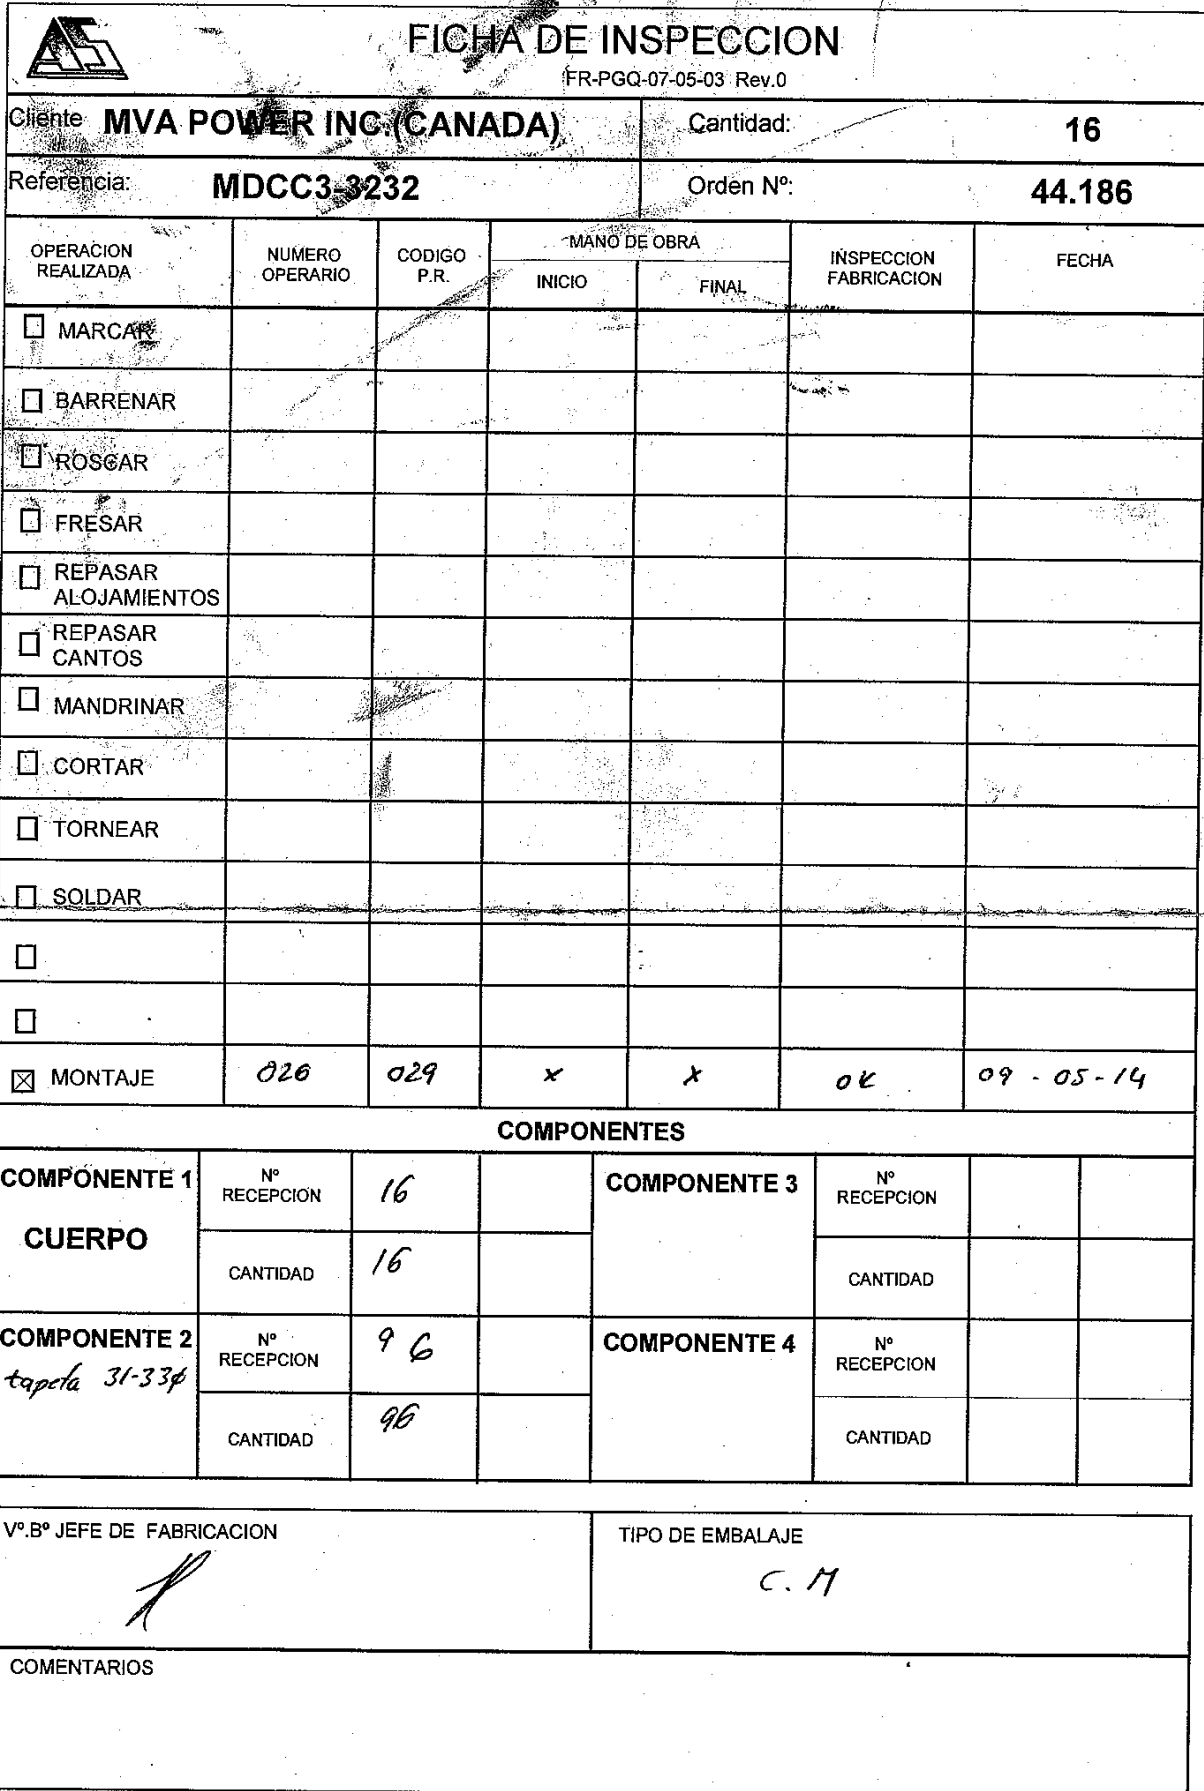 FICHA DE INSPECCION
FR-PGQ-07-05-03 Rev.0
Cliente MVA POWER INC.(CANADA) Cantidad: 16
Referencia: MDCC3-3232 Orden Nº: 44.186
OPERACION REALIZADA NUMERO OPERARIO CODIGO P.R. MANO DE OBRA INICIO FINAL INSPECCION FABRICACION FECHA
MARCAR
BARRENAR
ROSCAR
FRESAR
REPASAR
ALOJAMIENTOS
REPASAR
CANTOS
MANDRINAR
CORTAR
TORNEAR
SOLDAR
MONTAJE 026 029 x x OK 09 - 05 - 14
COMPONENTES
COMPONENTE 1 Nº RECEPCION 16 COMPONENTE 3 Nº RECEPCION
CUERPO CANTIDAD 16 CANTIDAD
COMPONENTE 2 Nº RECEPCION 96 COMPONENTE 4 Nº RECEPCION
tapeta 31-33ϕ CANTIDAD 96 CANTIDAD
Vº.Bº JEFE DE FABRICACION TIPO DE EMBALAJE
C. M
COMENTARIOS